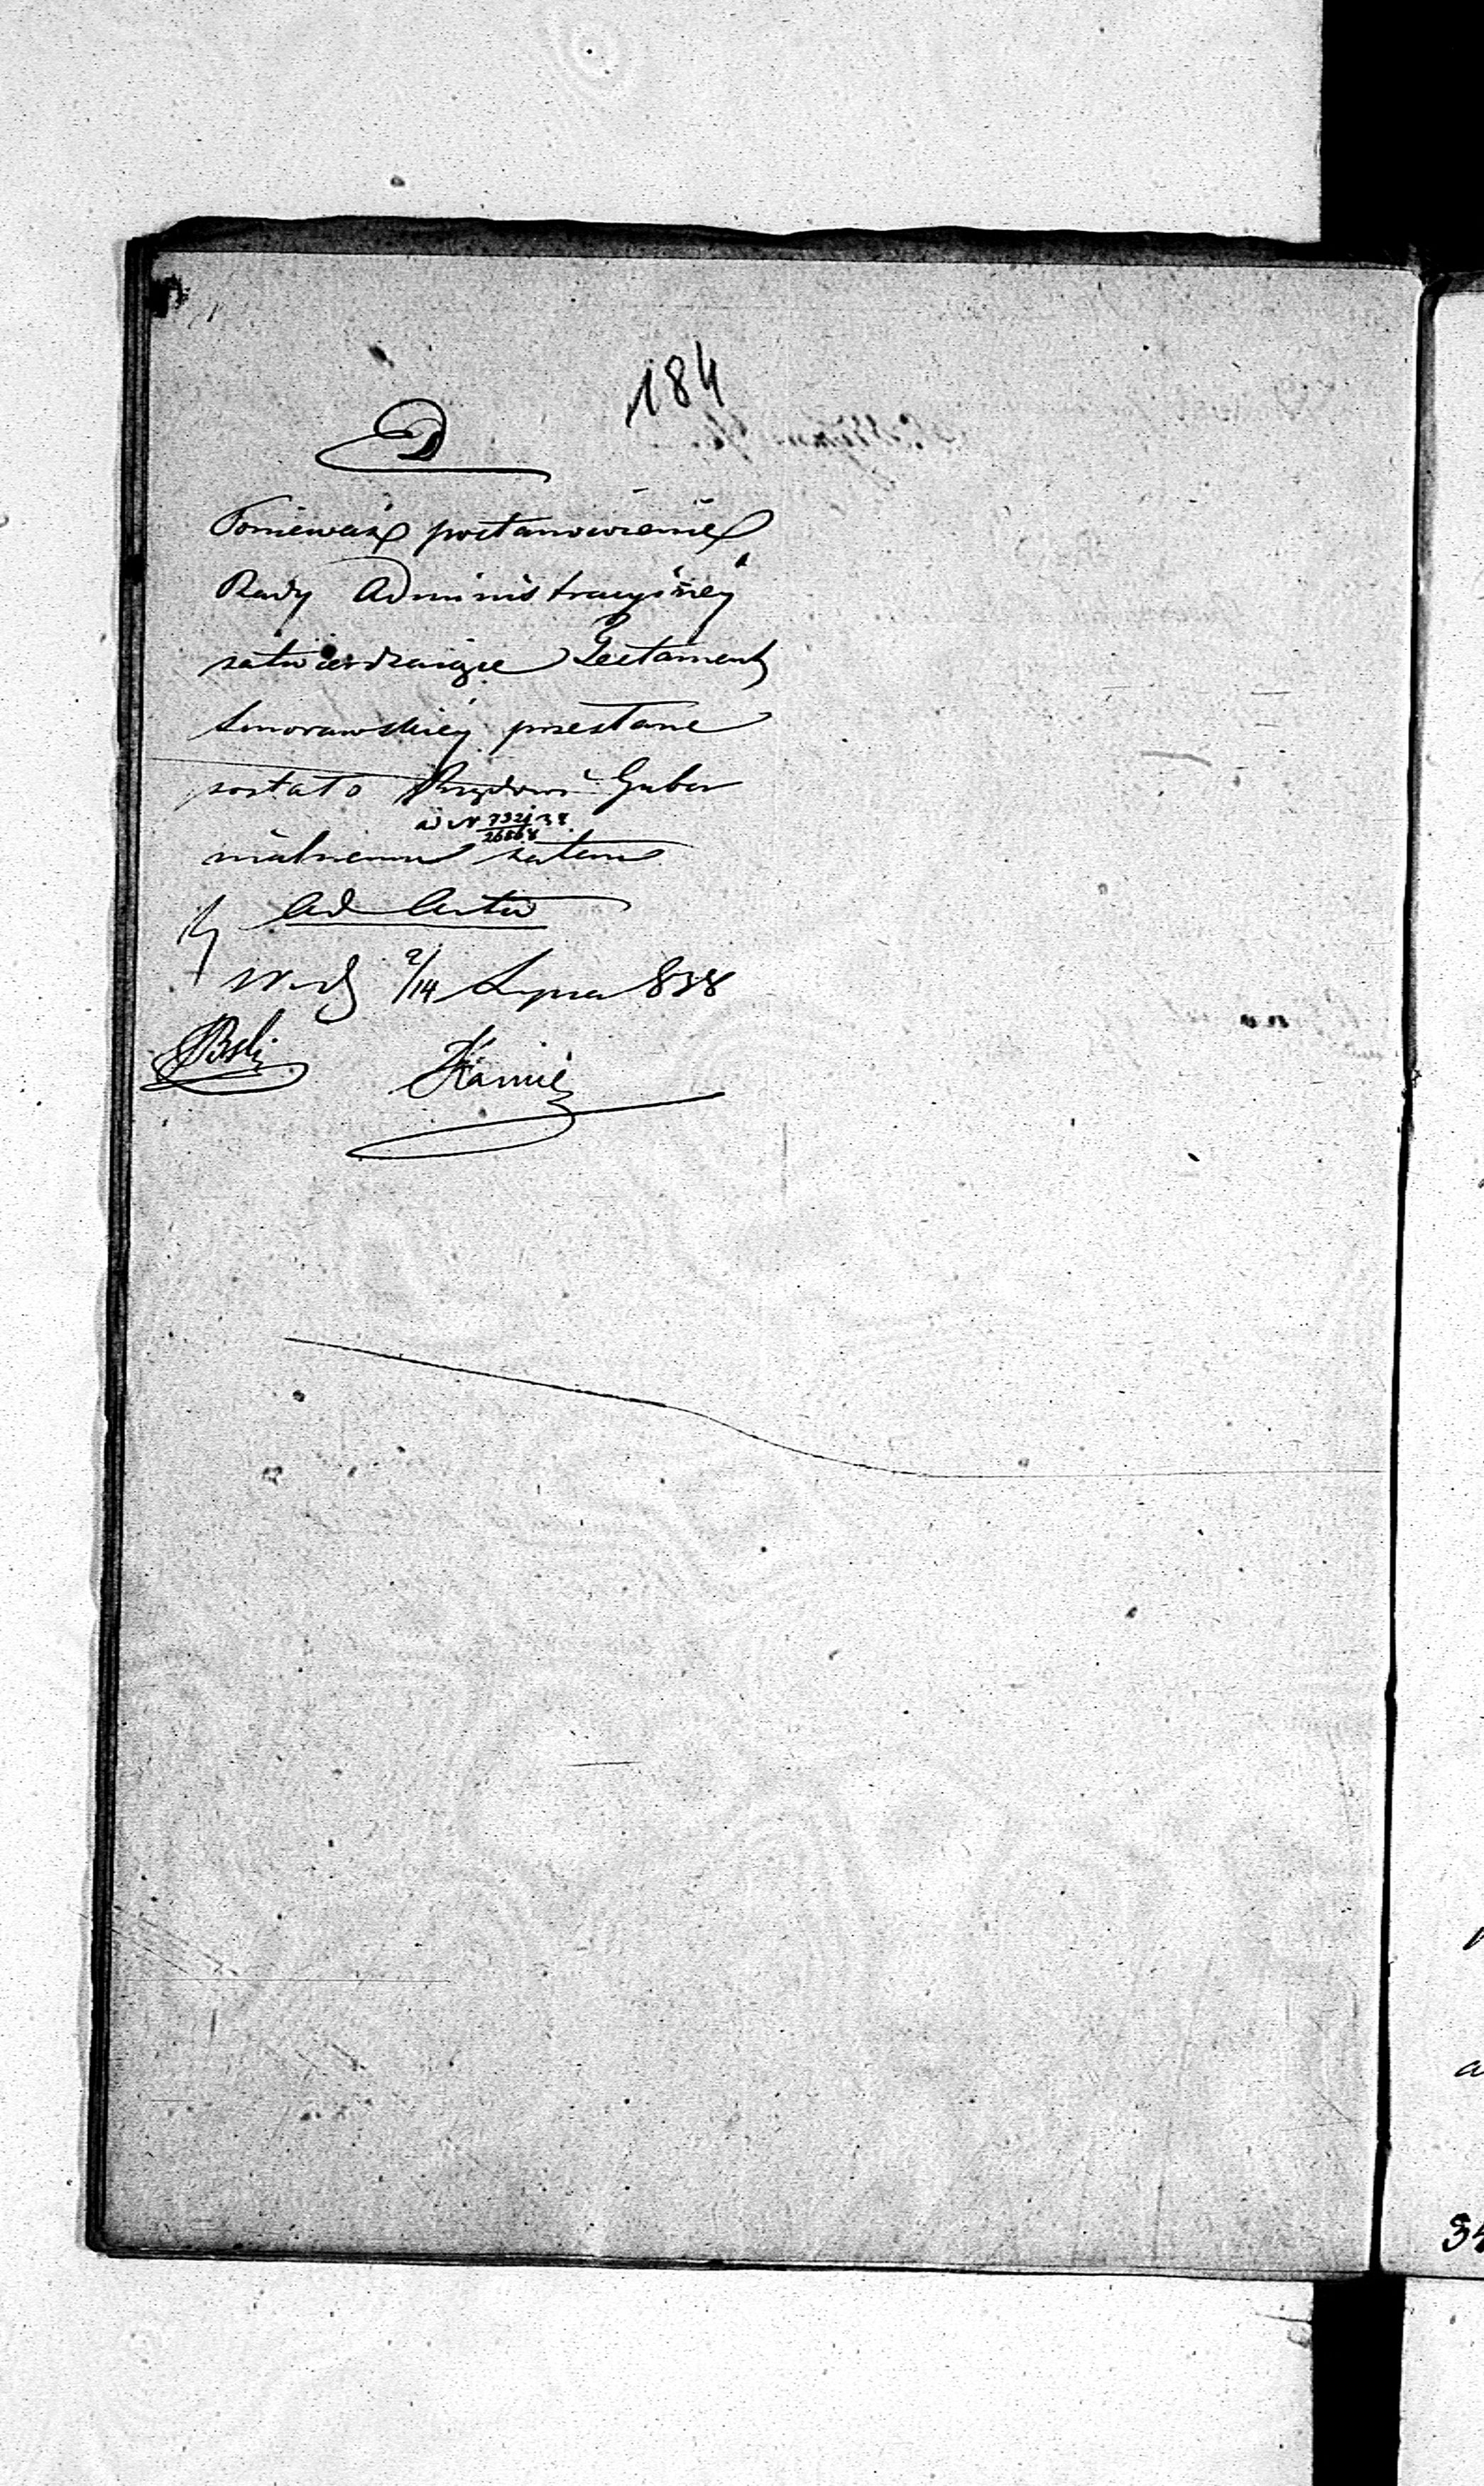 184
D
Ponieważ postanowienie
Rady Administracyiney
zatwierdzaiące Testament
przesłane
zostało Rządowi Guber
ad N 7321/26568 38
nialnemu zatem
ad Acta
W d 2/14 Lipca 838